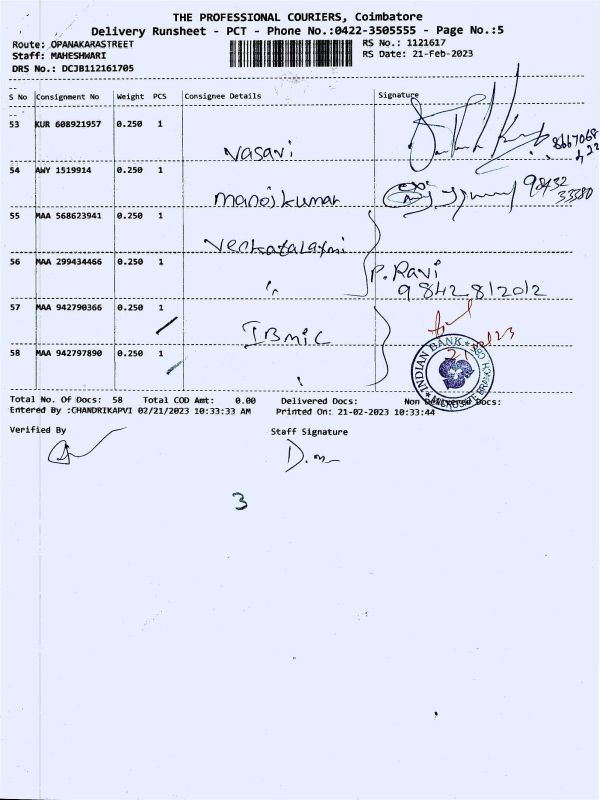 THE PROFESSIONAL COURIERS, Coimbatore
Delivery Runsheet - PCT - Phone No.:0422-3505555 - Page No.:5
Route: OPANAKARASTREET
Staff: MAHESHWARI
DRS No.: DCJB112161705
RS No.: 1121617
RS Date: 21-Feb-2023
S No Consignment No Weight PCS Consignee Details Signature
53 KUR 608921957 0.250 1
Vasavi
54 AWY 1519914 0.250 1
manojkumar
98432
33380
55 MAA 568623941 0.250 1
Venkatalaxmi
56 MAA 299434466 0.250 1
P. Ravi
9842812012
57 MAA 942790366 0.250 1
IBMIC
58 MAA 942797890 0.250 1
INDIAN BANK
Total No. Of Docs: 58 Total COD Amt: 0.00 Delivered Docs: Non Delivered Docs:
Entered By :CHANDRIKAPVI 02/21/2023 10:33:33 AM Printed On: 21-02-2023 10:33:44
Verified By Staff Signature
3